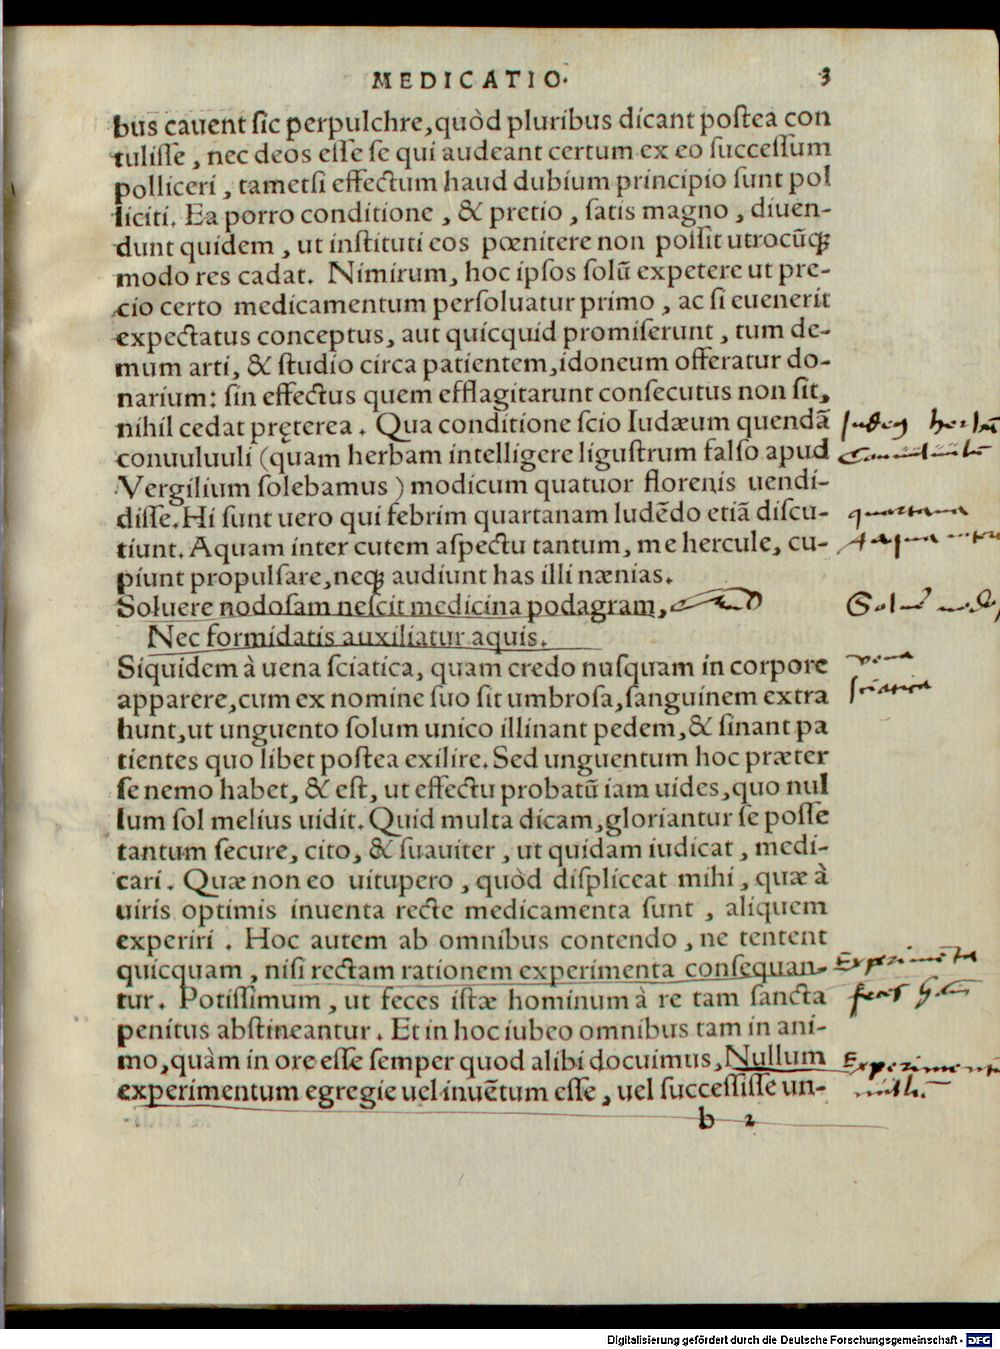 MEDICATIO. 3
bus cauent sic perpulchre, quòd pluribus dicant postea con
tulisse, nec deos esse se qui audeant certum ex eo successum
polliceri, tametsi effectum haud dubium principio sunt pol
liciti. Ea porro conditione, & pretio, satis magno, diuen-
dunt quidem, ut instituti eos pœnitere non possit utrocūqꝫ
modo res cadat. Nimirum, hoc ipsos solū expetere ut pre-
cio certo medicamentum persoluatur primo, ac si euenerit
expectatus conceptus, aut quicquid promiserunt, tum de-
mum arti, & studio circa patientem, idoneum offeratur do-
narium: sin effectus quem efflagitarunt consecutus non sit,
nihil cedat pręterea. Qua conditione scio Iudæum quendā
conuuluuli (quam herbam intelligere ligustrum falso apud
Vergilium solebamus) modicum quatuor florenis uendi-
disse. Hi sunt uero qui febrim quartanam ludēdo etiā discu-
tiunt. Aquam inter cutem aspectu tantum, me hercule, cu-
piunt propulsare, neqꝫ audiunt has illi nænias.
Soluere nodosam nescit medicina podagram,
Nec formidatis auxiliatur aquis.
Siquidem à uena sciatica, quam credo nusquam in corpore
apparere, cum ex nomine suo sit umbrosa, sanguinem extra
hunt, ut unguento solum unico illinant pedem, & sinant pa
tientes quo libet postea exilire. Sed unguentum hoc præter
se nemo habet, & est, ut effectu probatū iam uides, quo nul
lum sol melius uidit. Quid multa dicam, gloriantur se posse
tantum secure, cito, & suauiter, ut quidam iudicat, medi-
cari. Quæ non eo uitupero, quòd displiceat mihi, quæ à
uiris optimis inuenta recte medicamenta sunt, aliquem
experiri. Hoc autem ab omnibus contendo, ne tentent
quicquam, nisi rectam rationem experimenta consequan-
tur. Potissimum, ut feces istæ hominum à re tam sancta
penitus abstineantur. Et in hoc iubeo omnibus tam in ani-
mo, quàm in ore esse semper quod alibi docuimus, Nullum
experimentum egregie uel inuētum esse, uel successisse un-
b 2
quartana
uena
sciatica
Digitalisierung gefördert durch die Deutsche Forschungsgemeinschaft - DFG